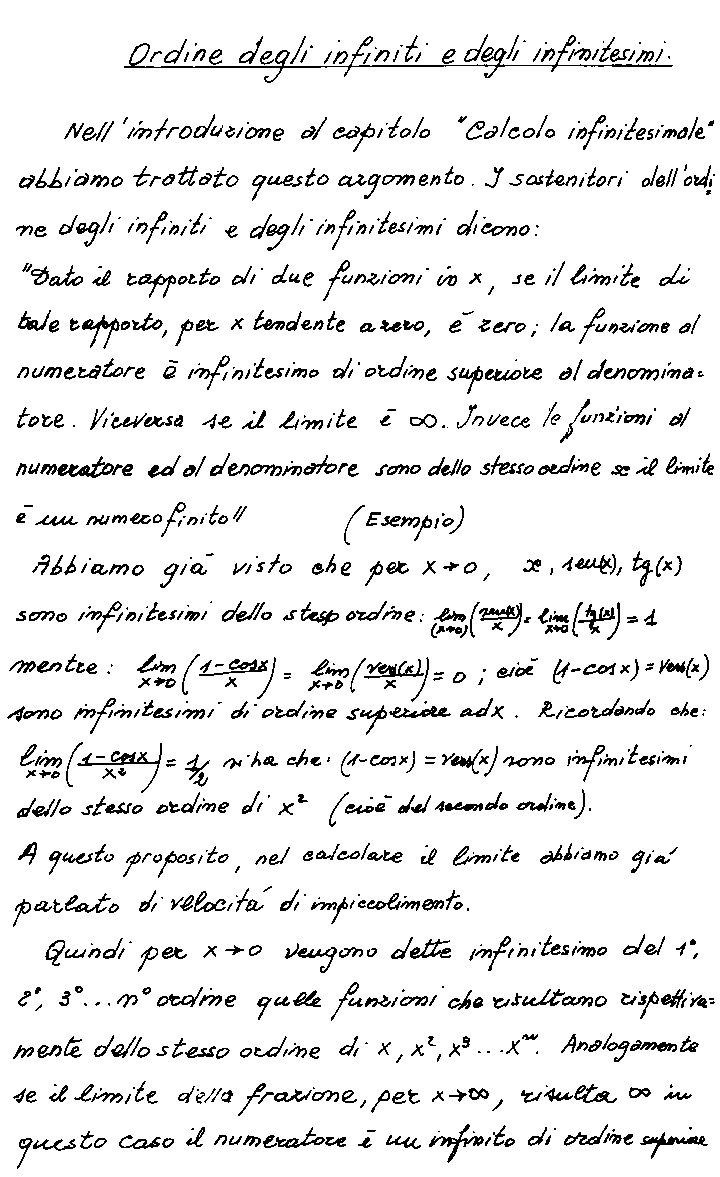 Ordine degli infiniti e degli infinitesimi.
Nell'introduzione al capitolo "Calcolo infinitesimale"
abbiamo trattato questo argomento. I sostenitori dell'ordi
ne degli infiniti e degli infinitesimi dicono:
"Dato il rapporto di due funzioni in x, se il limite di
tale rapporto, per x tendente a zero, è zero; la funzione al
numeratore è infinitesimo di ordine superiore al denomina=
tore. Viceversa se il limite è ∞. Invece le funzioni al
numeratore ed al denominatore sono dello stesso ordine se il limite
è un numero finito" (Esempio)
Abbiamo già visto che per x→0, x, sen(x), tg(x)
sono infinitesimi dello stesso ordine: lim (x→0) (sen(x)/x) = lim x→0 (tg(x)/x) = 1
mentre: lim x→0 (1-cosx/x) = lim x→0 (vers(x)/x) = 0; cioè (1-cosx) = vers(x)
sono infinitesimi di ordine superiore ad x. Ricordando che:
lim x→0 (1-cosx/x²) = 1/2 si ha che: (1-cosx) = vers(x) sono infinitesimi
dello stesso ordine di x² (cioè del secondo ordine).
A questo proposito, nel calcolare il limite abbiamo già
parlato di velocità di impiccolimento.
Quindi per x→0 vengono dette infinitesimo del 1°,
2°, 3°...n° ordine quelle funzioni che risultano rispettiva=
mente dello stesso ordine di x, x², x³...xⁿ. Analogamente
se il limite della frazione, per x→∞, risulta ∞ in
questo caso il numeratore è un infinito di ordine superiore